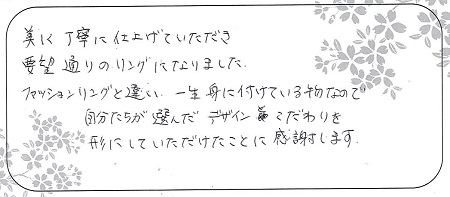 美しく丁寧に仕上げていただき
要望通りのリングになりました.
ファッションリングと違い、一生身に付けている物なので
自分たちが選んだ デザイン こだわりを
形にしていただけたことに感謝します.